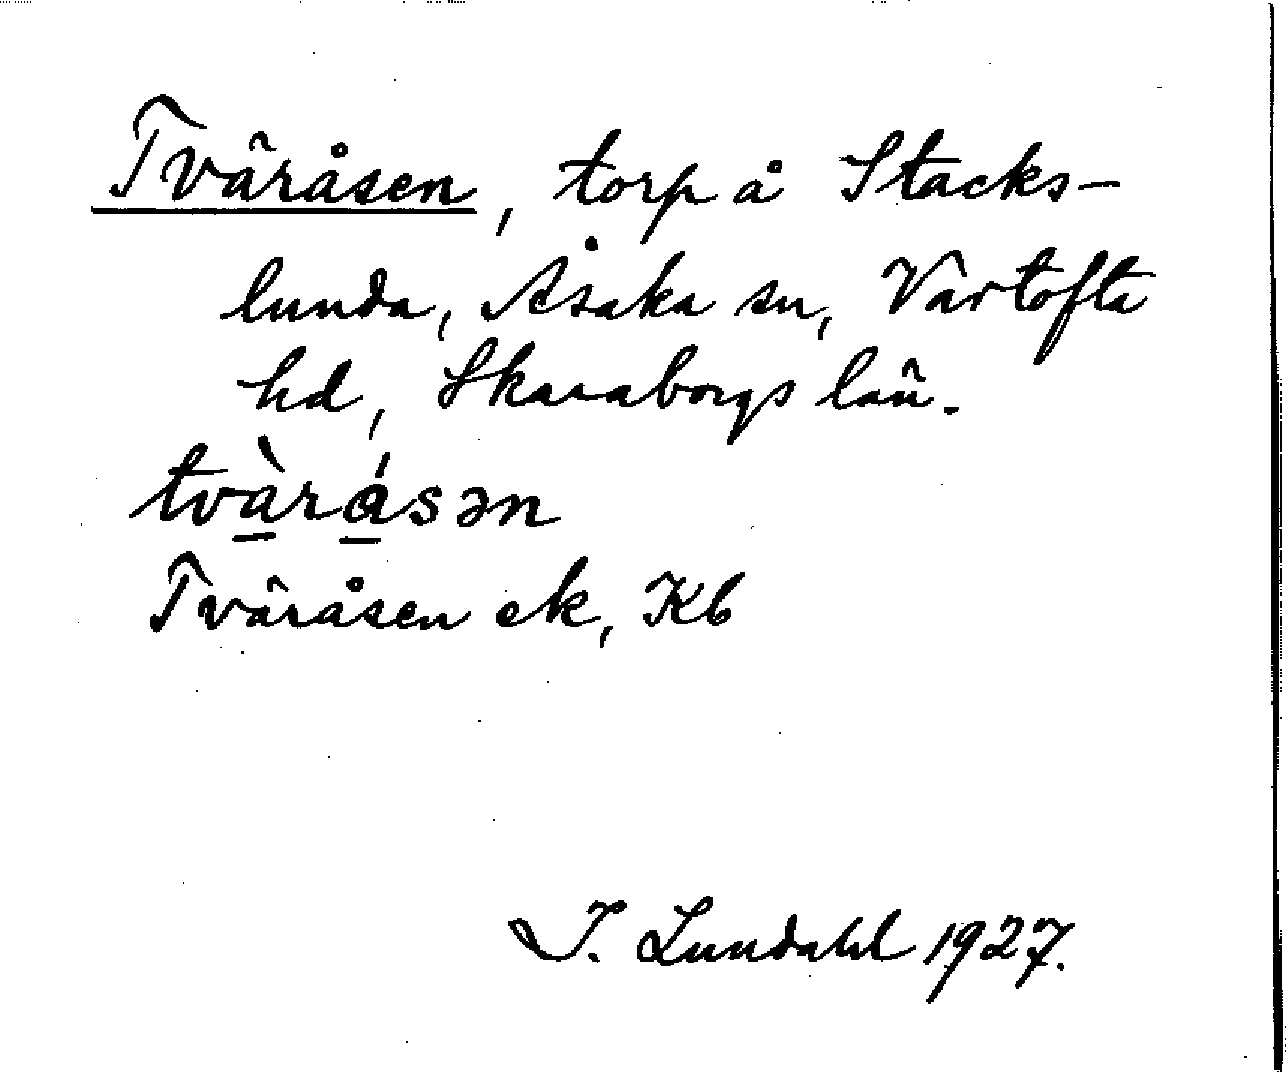 Tväråsen, torp å Stacks-
lunda, Åsaka sn, Vartofta
hd, Skaraborgs län.
tvà̱rá̱sən
Tväråsen ek, Kb
I. Lundahl 1927.